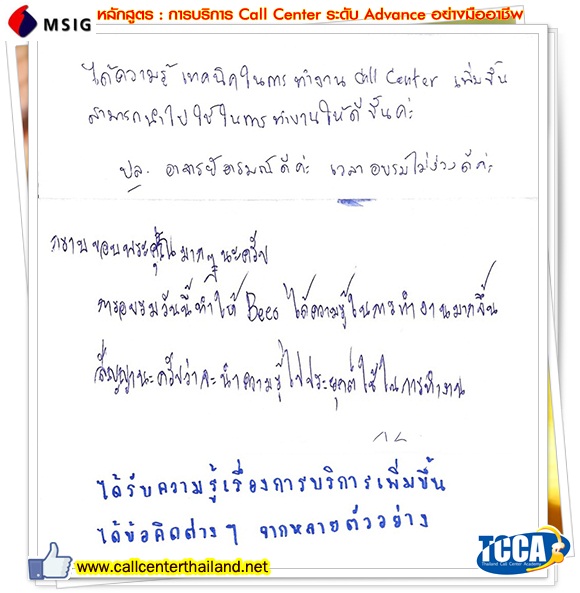 MSIG
หลักสูตร : การบริการ Call Center ระดับ Advance อย่างมืออาชีพ
ได้ความรู้ เทคนิคในการทำงาน Call Center เพิ่มขึ้น
สามารถนำไปใช้ในการทำงานให้ดีขึ้นค่ะ
ปล. อาจารย์อารมณ์ดีค่ะ เวลาอบรมไม่ง่วงดีค่ะ
กราบขอบพระคุณมากๆนะครับ
การอบรมวันนี้ทำให้ Bees ได้ความรู้ในการทำงานมากขึ้น
สัญญานะครับว่าจะนำความรู้ไปประยุกต์ใช้ในการทำงาน
ได้รับความรู้เรื่องการบริการเพิ่มขึ้น
ได้ข้อคิดต่าง ๆ จากหลายตัวอย่าง
www.callcenterthailand.net
TCCA
Thailand Call Center Academy